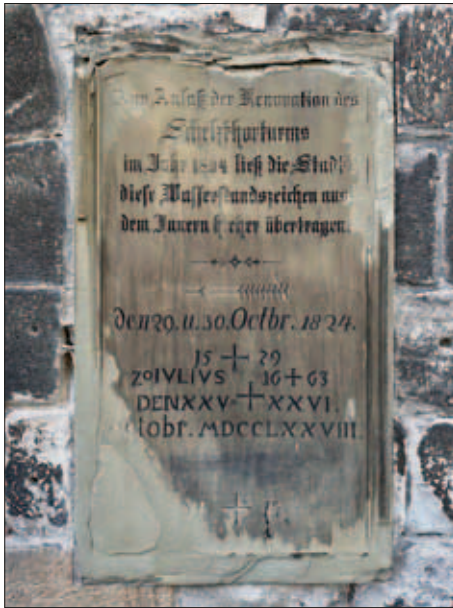 Zum Anlaß der Renovation des
Schelzthorturms
im Jahr 1894 ließ die Stadt
diese Wasserstandszeichen aus
dem Innern hieher übertragen.
den 29. u. 30. Octbr. 1824.
15 + 29
20 IVLIVS 16 + 63
DEN XXV + XXVI.
ctobr. MDCCLXXVIII.